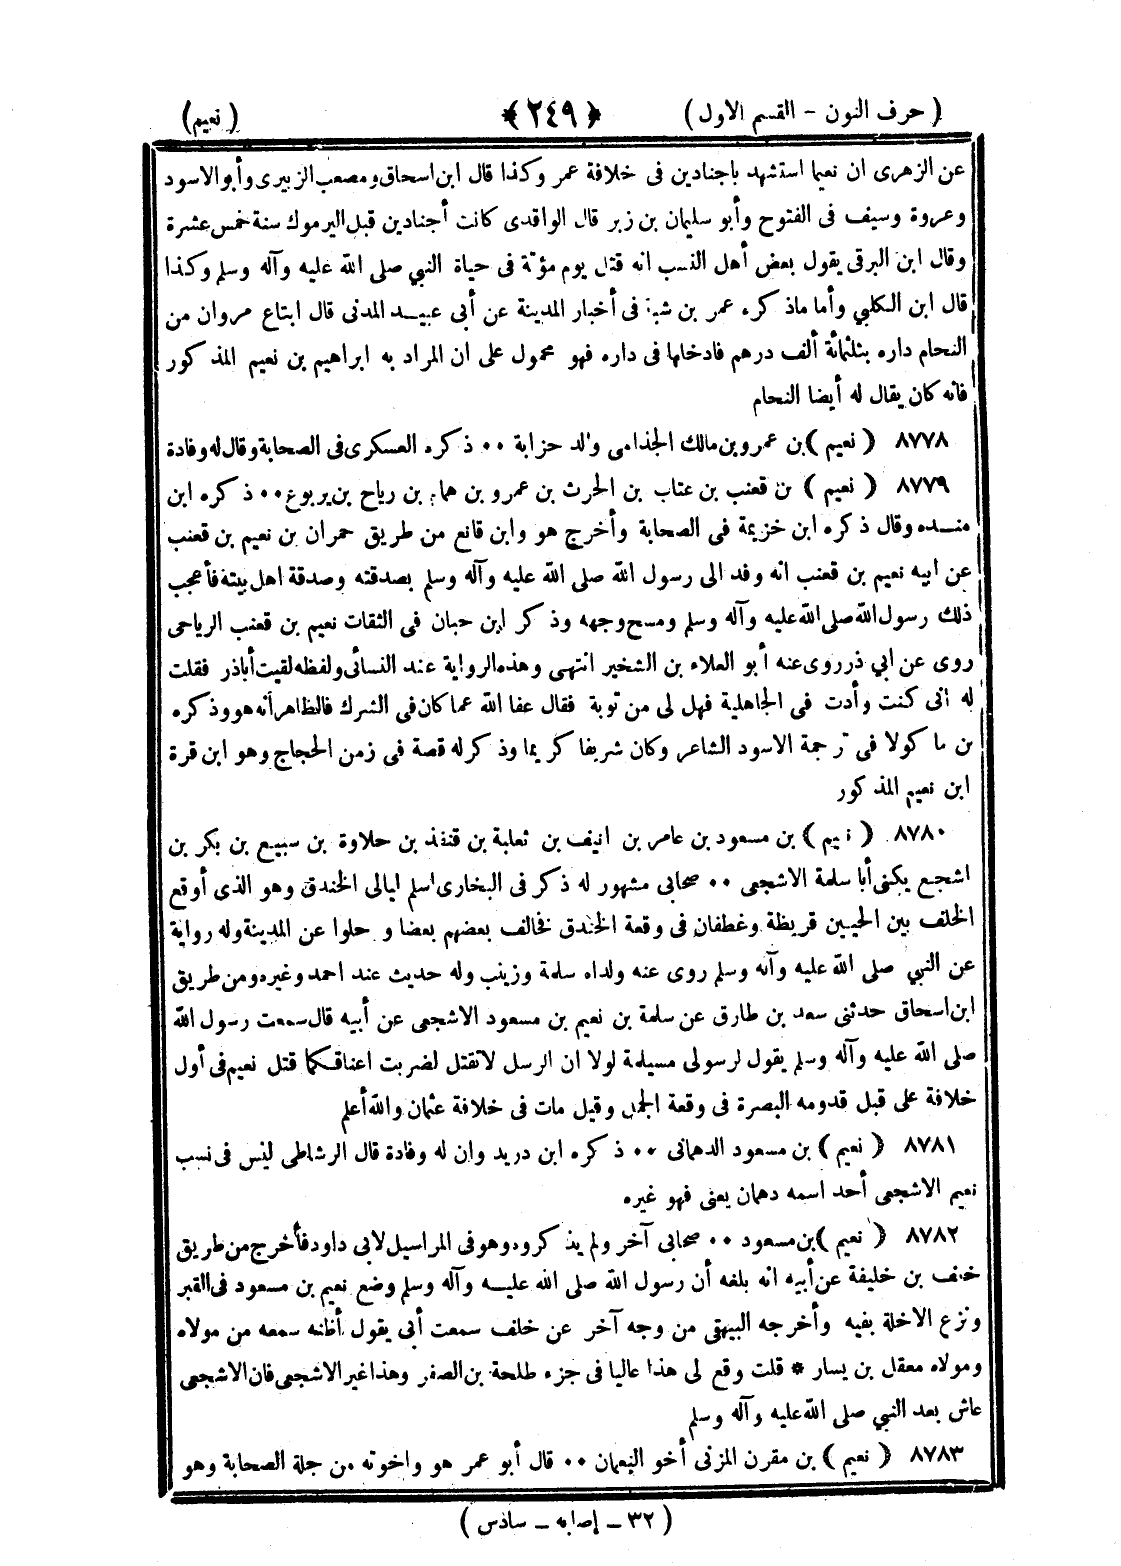 ( حرف النون – القسم الاول ) ﴿ ٢٤٩ ﴾ ( نعيم )
عن الزهرى ان نعيما استشهد باجنادين فى خلافة عمر وكذا قال ابن اسحاق ومصعب الزبيرى وأبو الاسود
وعروة وسيف فى الفتوح وأبو سليمان بن زبر قال الواقدى كانت أجنادين قبل اليرموك سنة خمس عشرة
وقال ابن البرقى يقول بعض أهل النسب انه قتل يوم مؤتة فى حياة النبي صلى الله عليه وآله وسلم وكذا
قال ابن الكلبي وأما ماذكره عمر بن شبة فى أخبار المدينة عن أبى عبيد المدنى قال ابتاع مروان من
النحام داره بثلثمائة ألف درهم فادخلها فى داره فهو محمول على ان المراد به ابراهيم بن نعيم المذكور
فانه كان يقال له أيضا النحام
٨٧٧٨ ( نعيم ) بن عمرو بن مالك الجذامى والد حزابة ٠٠ ذكره العسكرى فى الصحابة وقال له وفادة
٨٧٧٩ ( نعيم ) بن قعنب بن عتاب بن الحرث بن عمرو بن همام بن رياح بن يربوع ٠٠ ذكره ابن
منده وقال ذكره ابن خزيمة فى الصحابة وأخرج هو وابن قانع من طريق حمران بن نعيم بن قعنب
عن ابيه نعيم بن قعنب انه وفد الى رسول الله صلى الله عليه وآله وسلم بصدقته وصدقة اهل بيته فأعجب
ذلك رسول الله صلى الله عليه وآله وسلم ومسح وجهه وذكر ابن حبان فى الثقات نعيم بن قعنب الرياحى
روى عن ابي ذر روى عنه أبو العلاء بن الشخير انتهى وهذه الرواية عند النسائى ولفظه لقيت أباذر فقلت
له انى كنت وأدت فى الجاهلية فهل لى من توبة فقال عفا الله عما كان فى الشرك فالظاهر أنه هو وذكره
بن ماكولا فى ترجمة الاسود الشاعر وكان شريفا كريما وذكر له قصة فى زمن الحجاج وهو ابن قرة
ابن نعيم المذكور
٨٧٨٠ ( نعيم ) بن مسعود بن عامر بن انيف بن ثعلبة بن قنفذ بن حلاوة بن سبيع بن بكر بن
اشجع يكنى أبا سلمة الاشجعى ٠٠ صحابى مشهور له ذكر فى البخارى اسلم ليالى الخندق وهو الذى أوقع
الخلف بين الحيين قريظة وغطفان فى وقعة الخندق فخالف بعضهم بعضا ورحلوا عن المدينة وله رواية
عن النبي صلى الله عليه وآله وسلم روى عنه ولداه سلمة وزينب وله حديث عند احمد وغيره ومن طريق
ابن اسحاق حدثنى سعد بن طارق عن سلمة بن نعيم بن مسعود الاشجعى عن أبيه قال سمعت رسول الله
صلى الله عليه وآله وسلم يقول لرسولى مسيلمة لولا ان الرسل لاتقتل لضربت اعناقكما قتل نعيم فى أول
خلافة على قبل قدومه البصرة فى وقعة الجمل وقيل مات فى خلافة عثمان والله أعلم
٨٧٨١ ( نعيم ) بن مسعود الدهمانى ٠٠ ذكره ابن دريد وان له وفادة قال الرشاطى ليس فى نسب
نعيم الاشجعى أحد اسمه دهمان يعنى فهو غيره
٨٧٨٢ ( نعيم ) بن مسعود ٠٠ صحابى آخر ولم يذكروه وهو فى المراسيل لابى داود فأخرج من طريق
خلف بن خليفة عن أبيه انه بلغه أن رسول الله صلى الله عليه وآله وسلم وضع نعيم بن مسعود فى القبر
ونزع الاخلة بفيه وأخرجه البيهقى من وجه آخر عن خلف سمعت أبى يقول أظنه سمعه من مولاه
ومولاه معقل بن يسار * قلت وقع لى هذا عاليا فى جزء طلحة بن الصقر وهذا غير الاشجعى فان الاشجعى
عاش بعد النبي صلى الله عليه وآله وسلم
٨٧٨٣ ( نعيم ) بن مقرن المزنى أخو النعمان ٠٠ قال أبو عمر هو واخوته من جلة الصحابة وهو
( ٣٢ – إصابه – سادس )